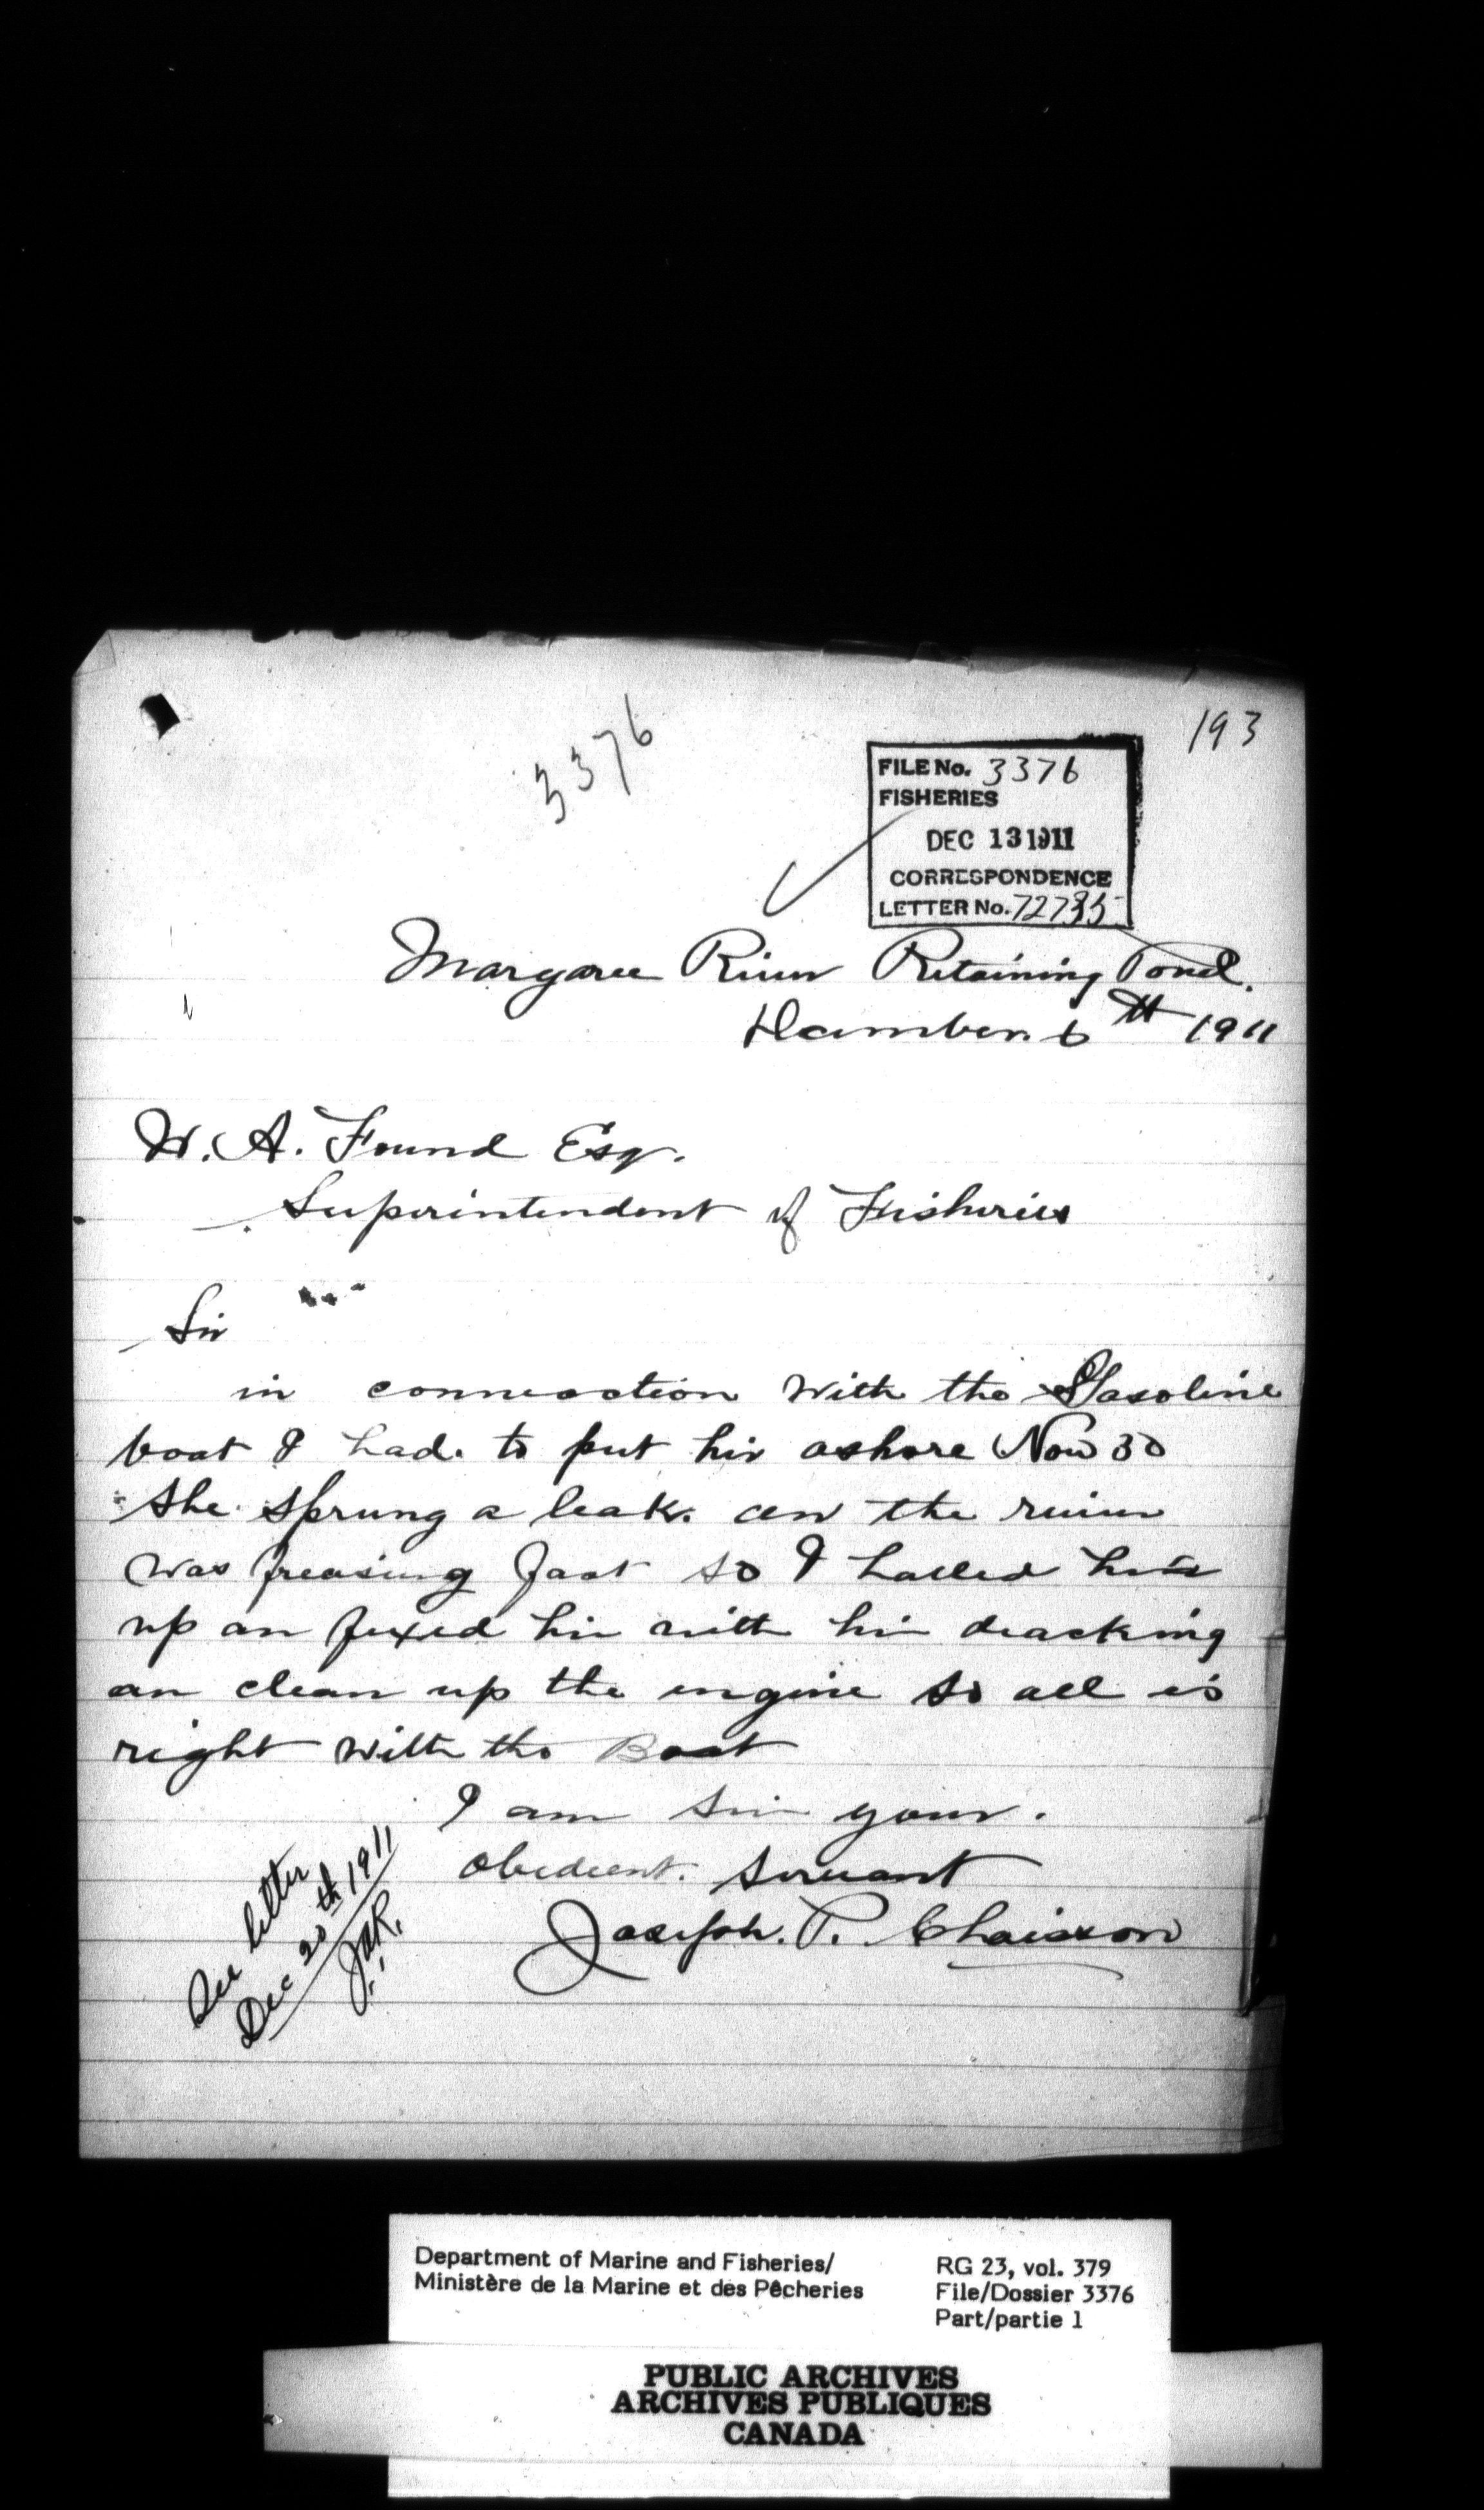 193
3376
FILE No. 3376
FISHERIES
DEC 13 1911
CORRESPONDENCE
LETTER No. 72735
Margaree River Retaining Pond.
December 6th 1911
W. A. Found Esq.
Superintendent of Fisheries
Sir
in conneaction with the Gasoline
boat I had. to put hir ashore Nov 30
She sprung a leak. an the river
was freasing fast so I halled hir
up an fixed hir with hir deacking
an clean up the engine so all is
right with the Boat
I am Sir your.
obedient. Servant
Joseph. P. Chaisson
See letter
Dec 20th 1911
Department of Marine and Fisheries/
Ministère de la Marine et des Pêcheries
RG 23, vol. 379
File/Dossier 3376
Part/partie 1
PUBLIC ARCHIVES
ARCHIVES PUBLIQUES
CANADA